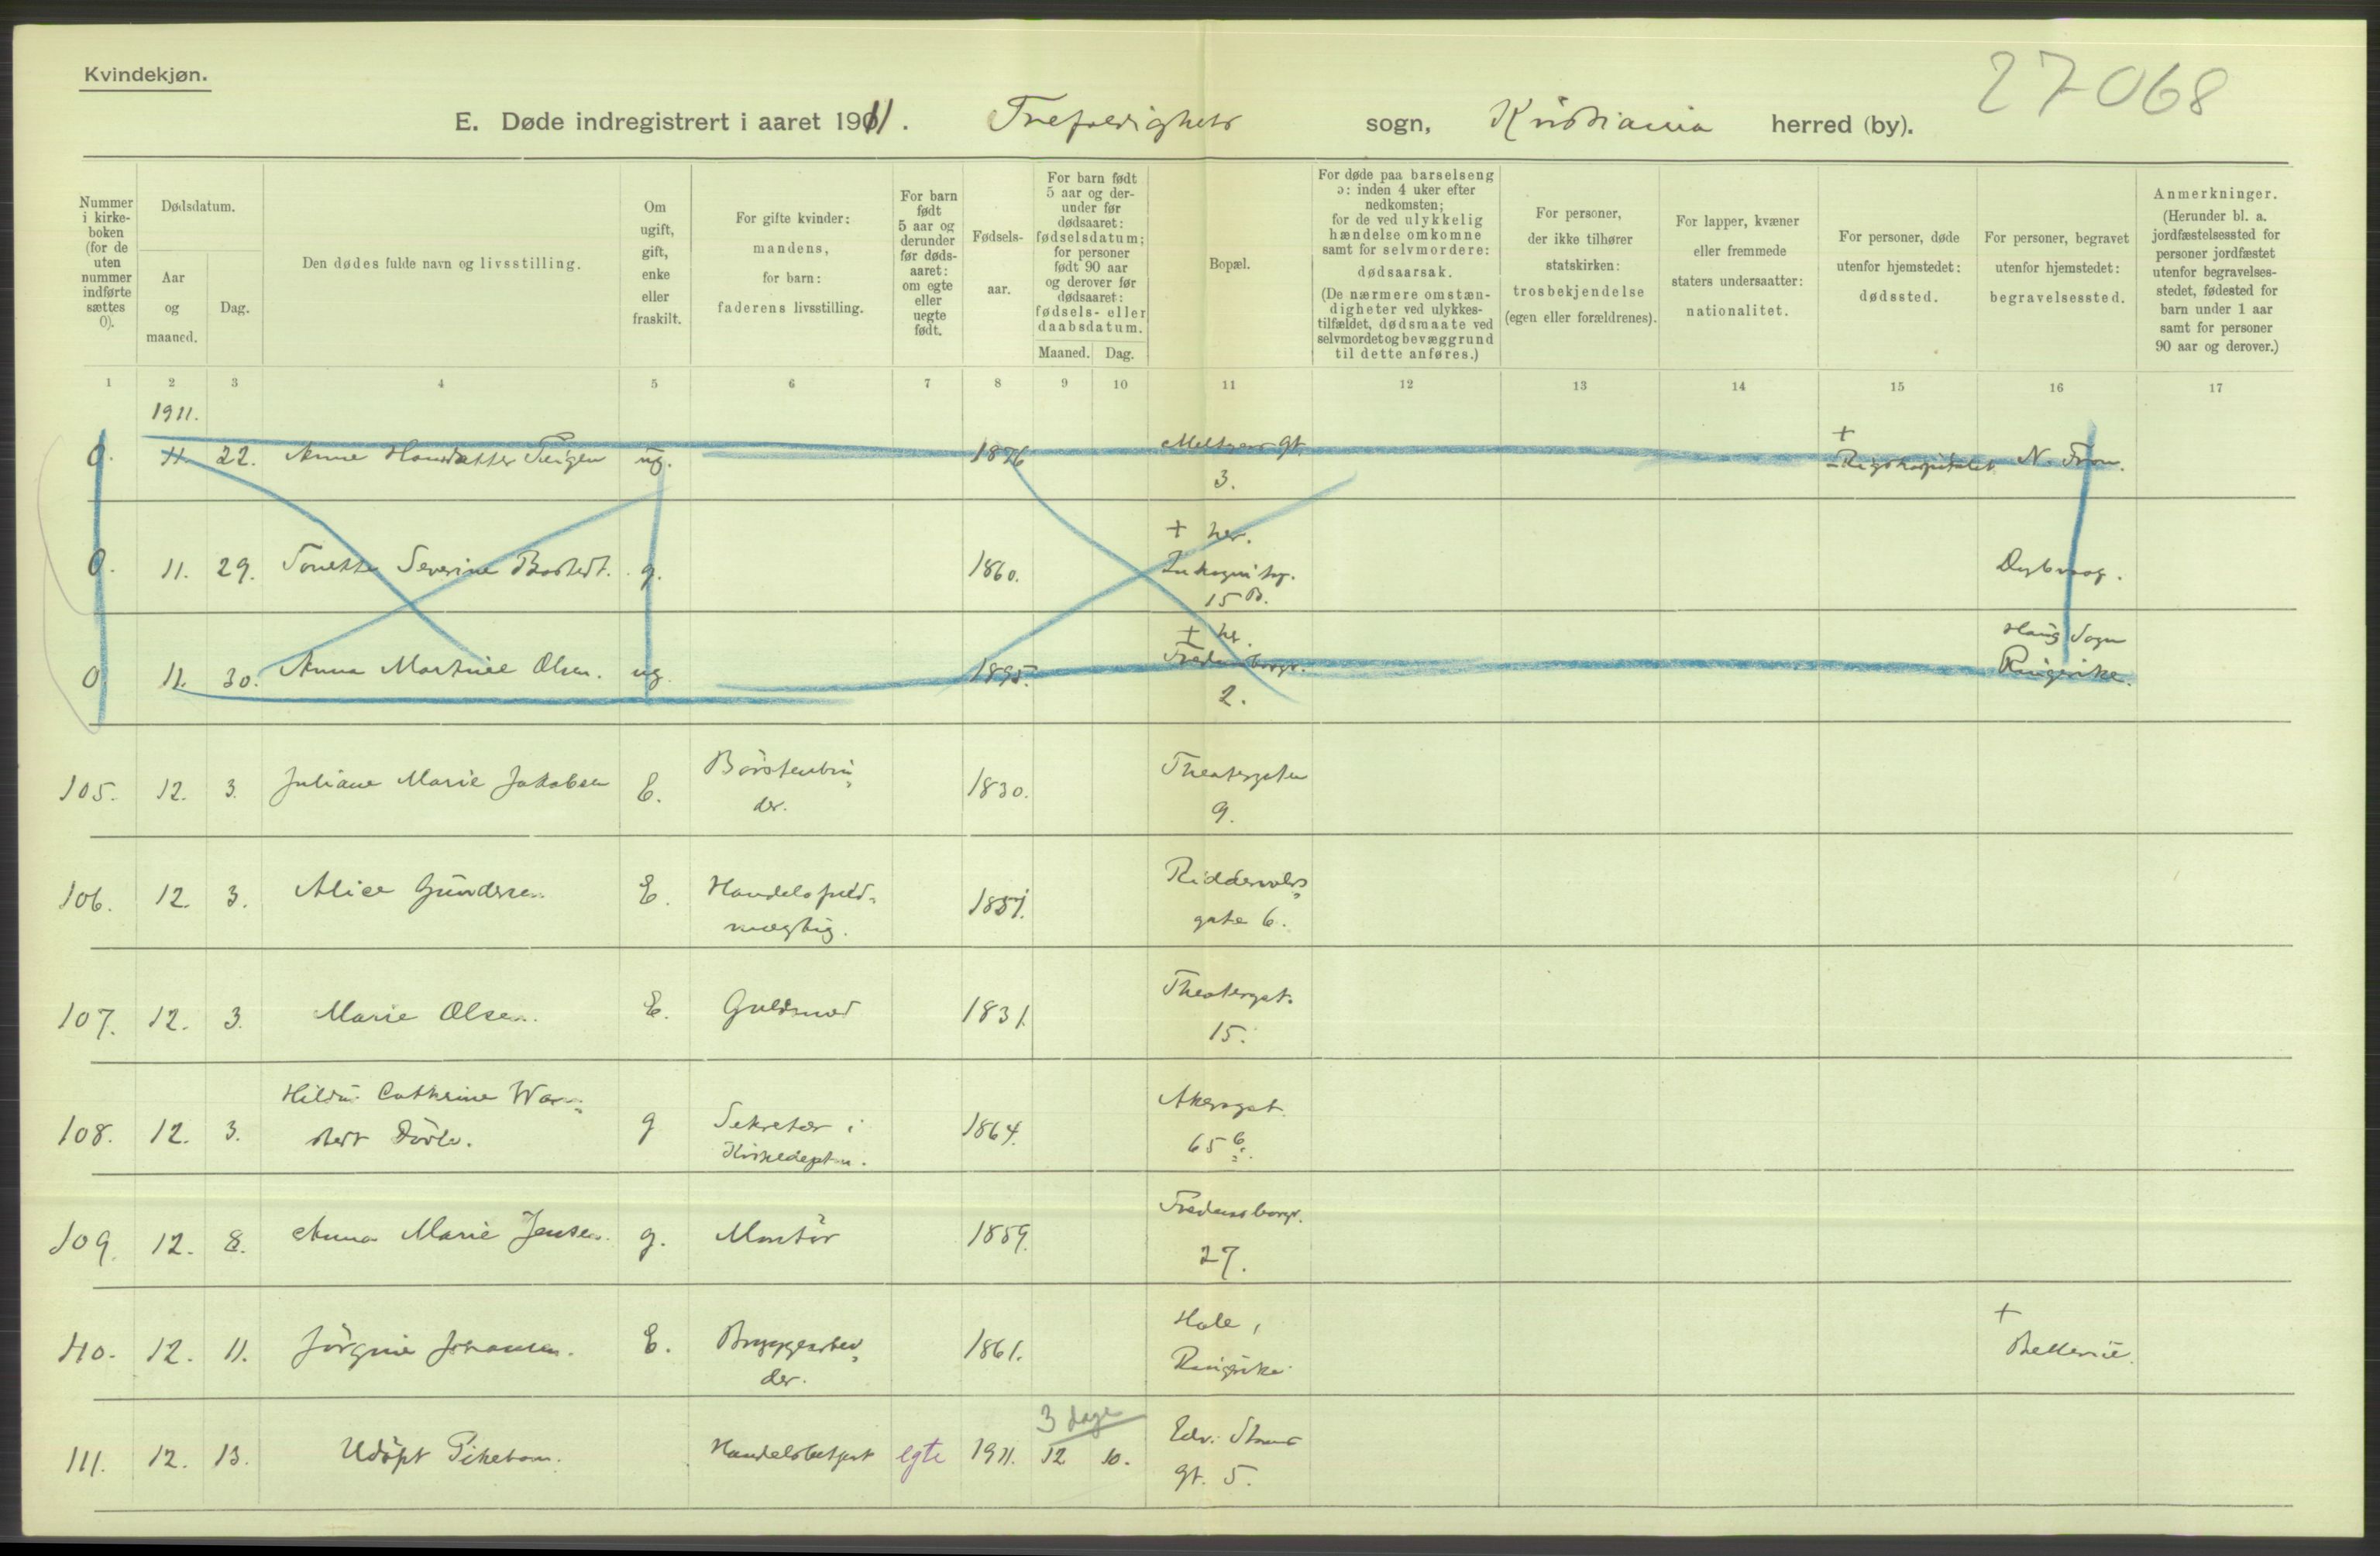 Kvindekjøn.
27068
E. Døde indregistrert i aaret 1911. Trefoldigheds sogn, Kristiania herred (by).
Nummer i kirke-boken (for de uten nummer indførte sættes 0).
Dødsdatum.
Aar og maaned.
Dag.
Den dødes fulde navn og livsstilling.
Om ugift, gift, enke eller fraskilt.
For gifte kvinder: mandens, for barn: faderens livsstilling.
For barn født 5 aar og derunder før døds-aaret: om egte eller uegte født.
Fødsels-aar.
For barn født 5 aar og der-under før dødsaaret: fødselsdatum; for personer født 90 aar og derover før dødsaaret: fødsels- eller daabsdatum.
Maaned. Dag.
Bopæl.
For døde paa barselseng ɔ: inden 4 uker efter nedkomsten; for de ved ulykkelig hændelse omkomne samt for selvmordere: dødsaarsak. (De nærmere omstæn-digheter ved ulykkes-tilfældet, dødsmaate ved selvmordet og bevæggrund til dette anføres.)
For personer, der ikke tilhører statskirken: trosbekjendelse (egen eller forældrenes).
For lapper, kvæner eller fremmede staters undersaatter: nationalitet.
For personer, døde utenfor hjemstedet: dødssted.
For personer, begravet utenfor hjemstedet: begravelsessted.
Anmerkninger. (Herunder bl. a. jordfæstelsessted for personer jordfæstet utenfor begravelses-stedet, fødested for barn under 1 aar samt for personer 90 aar og derover.)
1 2 3 4 5 6 7 8 9 10 11 12 13 14 15 16 17
1911.
0. 11. 22. Anne Hansdatter ug. 1876 Meltzers gt. 3. + Rigshospitalet N. Fron.
0. 11. 29. Tonette Severine g. 1860. + her. Inkognitog. 15 B. Dybvaag.
0 11. 30. Anna Martine Olsen. ug. 1895. + her. Fredensborgv. 2. Haug Sogn Ringerike.
105. 12. 3. Juliane Marie Jakobsen E. Börstenbin-
der. 1830. Theatergaten
9.
106. 12. 3. Alice Gundersen E. Handelsfuld-
mægtig. 1857. Riddervolds-
gate 6.
107. 12. 3. Marie Olsen. E. Guldsmed 1831. Theatergat.
15.
108. 12. 3. Cathrine g Sekretær i
Kirkedeptm. 1864. Akersgat.
65 b.
109. 12. 8. Anna Marie Jensen. g. Montör 1859. Fredensborgv.
27.
110. 12. 11. Jörgine Johansen. E. Bryggearbei-
der. 1861. Hole,
Ringerike. +
111. 12. 13. Udöpt Pikebarn. Handelsbetjent egte 1911. 3 dage
12 10. Edv. Storms
gt. 5.